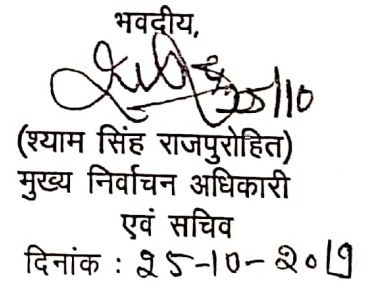 भवदीय,
25/10
(श्याम सिंह राजपुरोहित)
मुख्य निर्वाचन अधिकारी
एवं सचिव
दिनांक : 25-10-2019